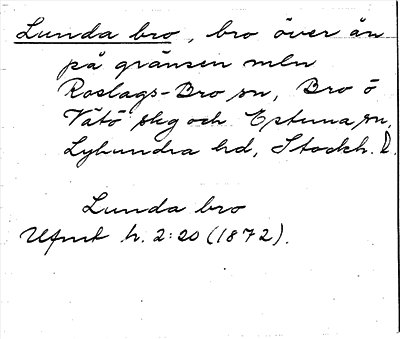 Lunda bro, bro över ån
på gränsen mln
Roslags-Bro sn, Bro o
Vätö skg och Estuna sn,
Lyhundra hd, Stockh. l.
Lunda bro
Ufmt h. 2:20 (1872).